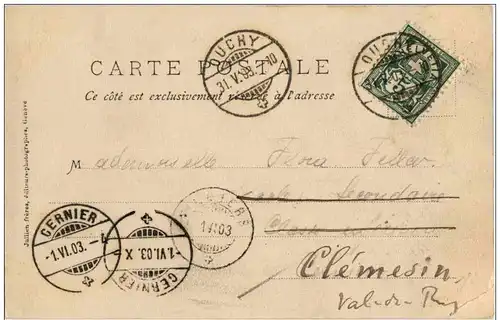 OUCHY
31.V.03.-10
OUCHY
CARTE POSTALE
Ce côté est exclusivement réservé à l'adresse
Jullien frères, éditeurs-photographes, Genève
Mademoiselle Flora
Ecole Secondaire
CERNIER
-1.VI.03.-4
CERNIER
-1.VI.03.X
VI 03
Clémesin
Val-de-Ruz